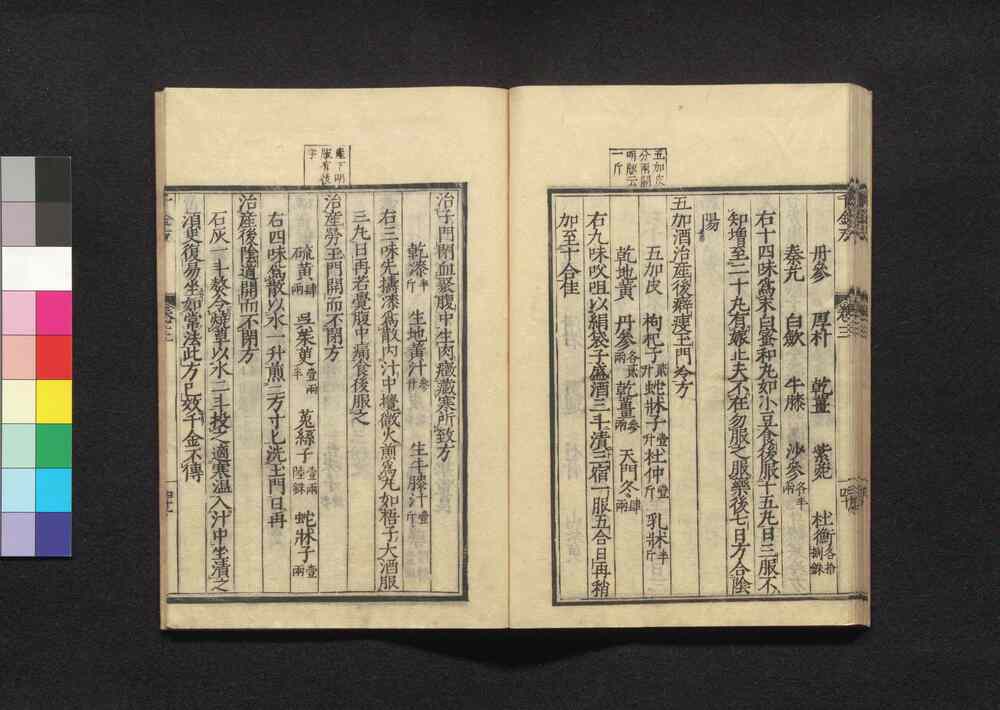 五加皮
分兩閣
明版云
一斤
丹參 厚朴 乾薑 紫菀 杜衡各拾捌銖
秦艽 白歛 牛膝 沙參各半兩
右十四味爲末白蜜和丸如小豆食後服十五丸日三服不
知增至二十丸有嫁止夫不在勿服之服藥後七日方合陰
陽
五加酒治產後癖瘦玉門冷方
五加皮 枸杞子貳升 蛇牀子壹升 杜仲壹斤 乳牀半斤
乾地黃 丹參各貳兩 乾薑參兩 天門冬肆兩
右九味㕮咀以絹袋子盛酒三斗漬三宿一服五合日再稍
加至十合佳
千金方 卷三
字
治子門閉血聚腹中生肉癥藏寒所致方
乾漆半斤 生地黃汁參升 生牛膝汁壹斤
右三味先擣漆爲散內汁中攪微火煎爲丸如梧子大酒服
三丸日再若覺腹中痛食後服之
治產勞玉門開而不閉方
硫黃肆兩 吳茱萸壹兩半 菟絲子壹兩陸銖 蛇牀子壹兩
右四味爲散以水一升煎二方寸匕洗玉門日再
治產後陰道開而不閉方
石灰一斗熬令燒草以水二斗投之適寒溫入汁中坐漬之
須臾復易坐如常法此方已效千金不傳